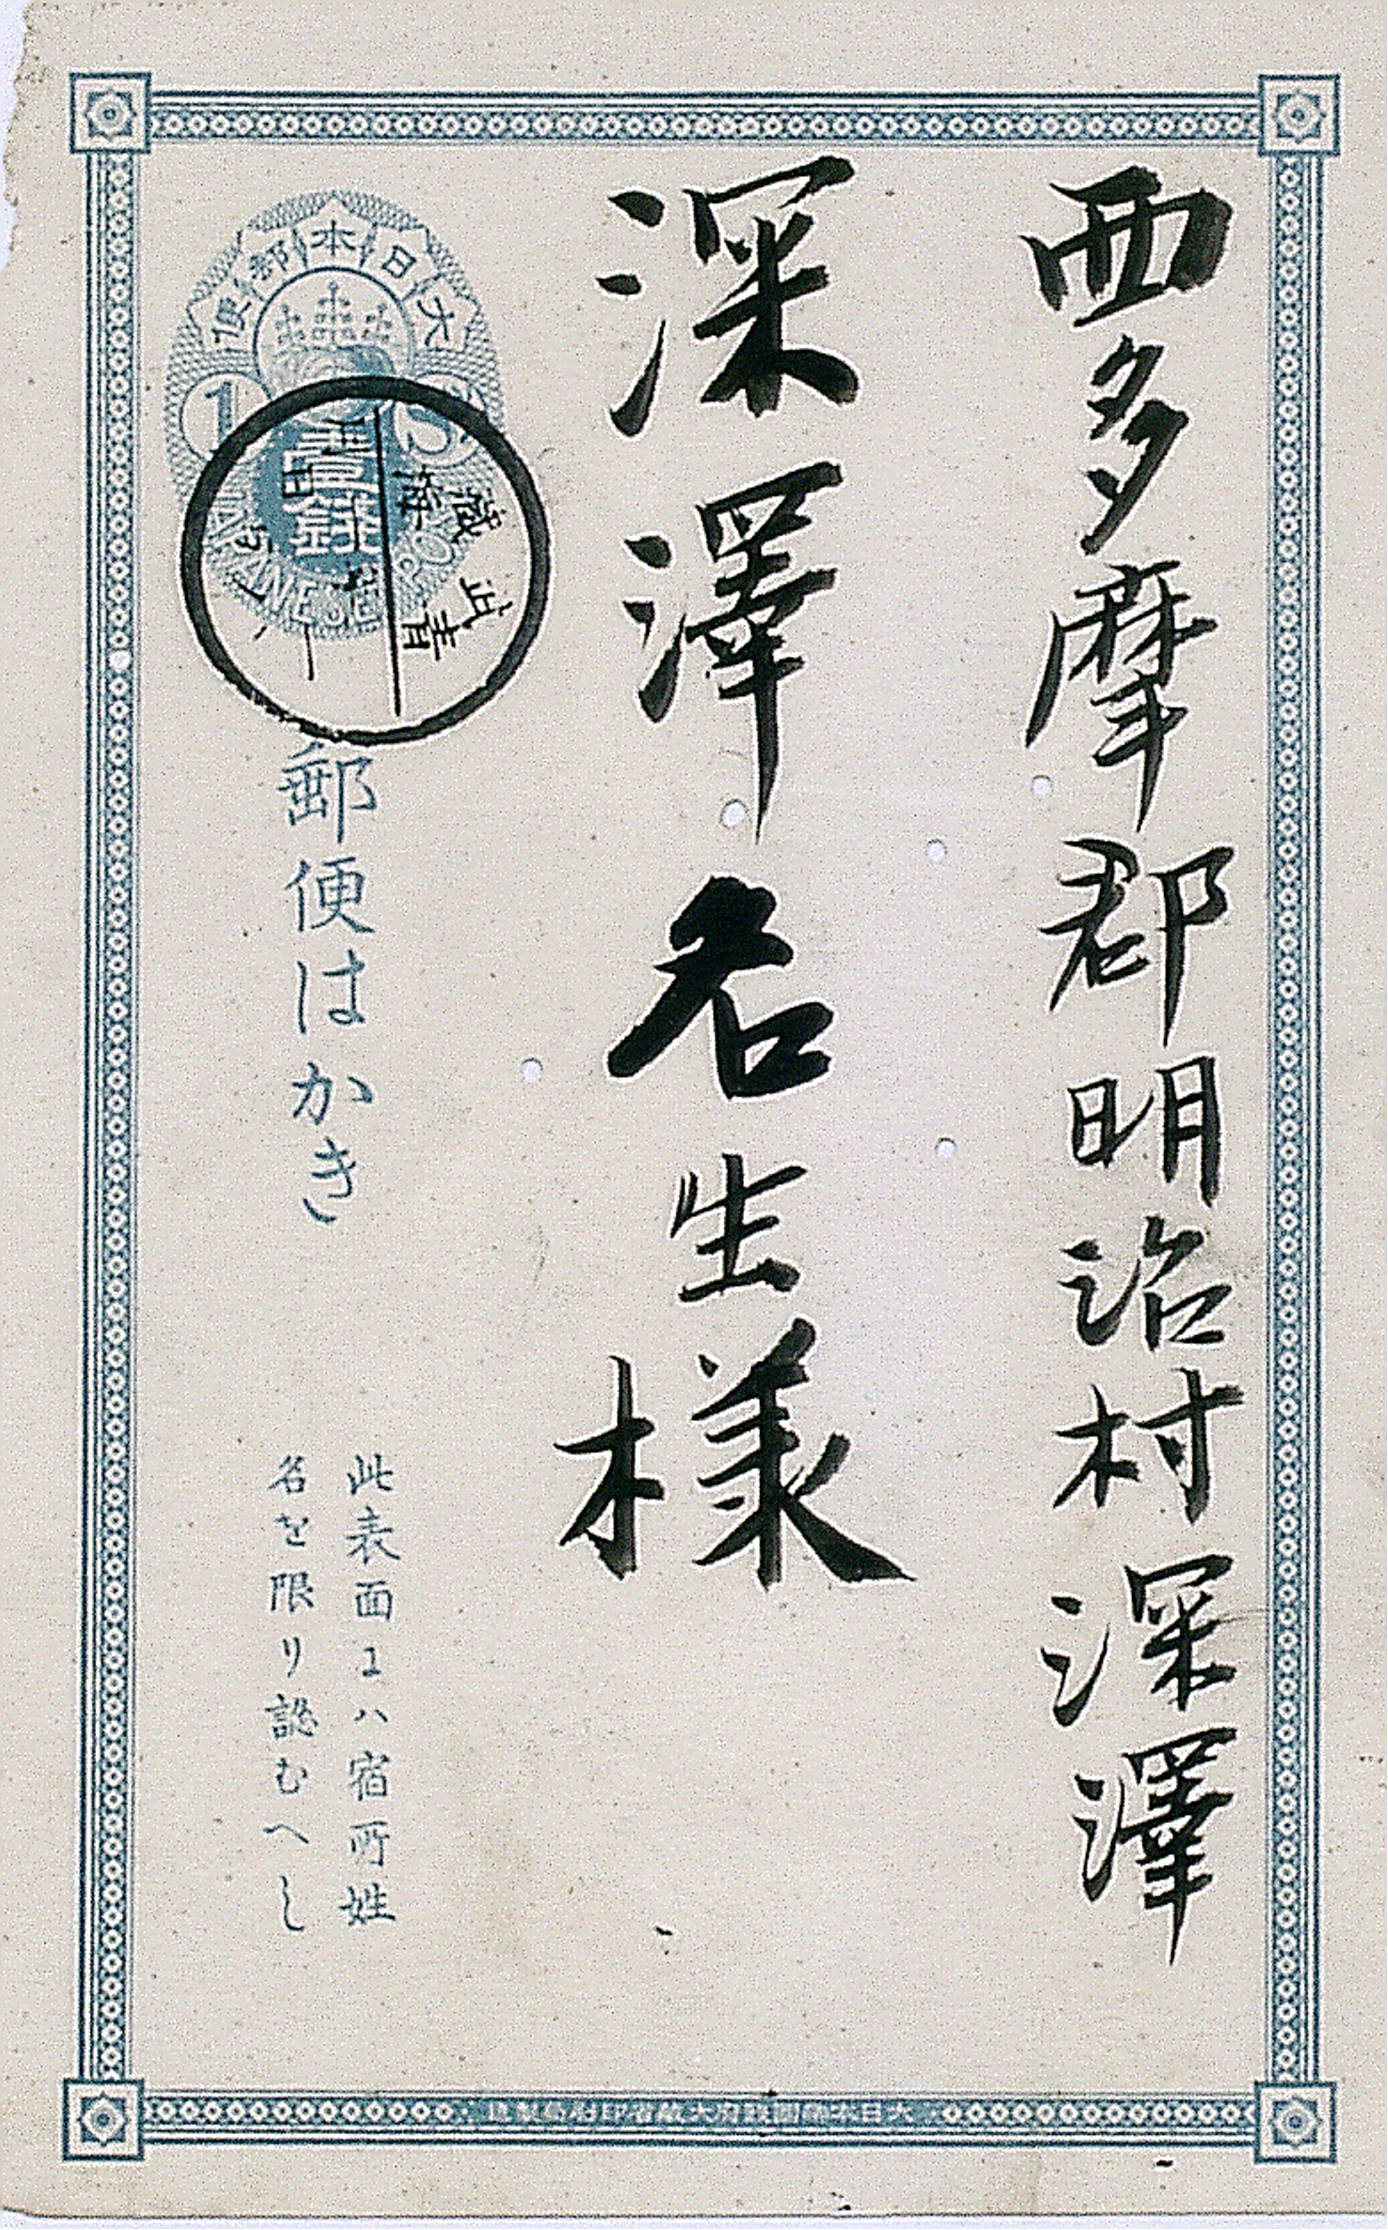 西多摩郡明治村深澤
深澤名生様
大日本郵便
1 S
壹錢
郵便はかき
此表面にハ宿所姓
名を限り認むへし